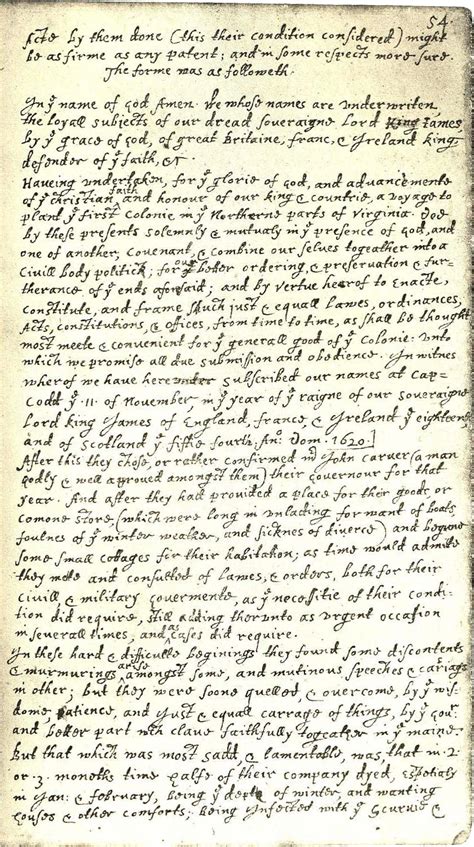 54
Acte by them done (this their condition considered) might
be as firme as any patent; and in some respects more sure.
The forme was as followeth.
In yͤ name of God Amen. We whose names are underwriten,
the loyall subjects of our dread soveraigne Lord King James,
by yͤ grace of God, of great Britaine, franc, & Ireland king,
defender of yͤ faith, &c
Haveing undertaken, for yͤ glorie of God, and advancemente
of yͤ christian faith and honour of our king & countrie, a voyage to
plant yͤ first Colonie in yͤ Northerne parts of Virginia. Doe
by these presents solemnly & mutualy in yͤ presence of God, and
one of another, Covenant, & combine our selves togeather into a
Civill body politick; for our better ordering, & preservation & fur-
therance of yͤ ends aforesaid; and by vertue hearof to Enacte,
constitute, and frame shuch just & equall Lawes, ordinances,
Acts, constitutions, & offices, from time to time, as shall be thought
most meete & convenient for yͤ generall good of yͤ Colonie: unto
which we promise all due submission and obedience. In witnes
wherof we have hereunder subscribed our names at Cap-
Codd yͤ .11. of November, in yͤ year of yͤ raigne of our soveraigne
Lord king James of England, france, & Ireland yͤ eighteenth
and of Scotland yͤ fiftie fourth. Anͦ: Dom. 1620.]
After this they chose, or rather confirmed mͬ John carver (a man
godly & well aproved amongst them) their governour for that
year. And after they had provided a place for their goods, or
comone store, (which were long in unlading for want of boats,
foulnes of yͤ winter weather, and sicknes of diverce) and begune
some small cottages for their habitation; as time would admitte
they mette and consulted of lawes, & orders, both for their
civill & military govermente, as yͤ necessitie of their condi-
tion did require, still adding therunto as urgent occasion
in severall times, and as cases did require.
In these hard & difficulte beginings they found some discontents
& murmurings arise amongst some, and mutinous speeches & cariags
in other; but they were soone quelled, & overcome, by yͤ wis-
dome, patience, and just & equall carrage of things, by yͤ Govͬ
and better part wͨͪ clave faithfully togeather in yͤ maine.
But that which was most sadd, & lamentable, was, that in .2.
or .3. moneths time halfe of their company dyed, espetialy
in Jan: & february, being yͤ depth of winter, and wanting
houses & other comforts; being Infected with yͤ scurvie &